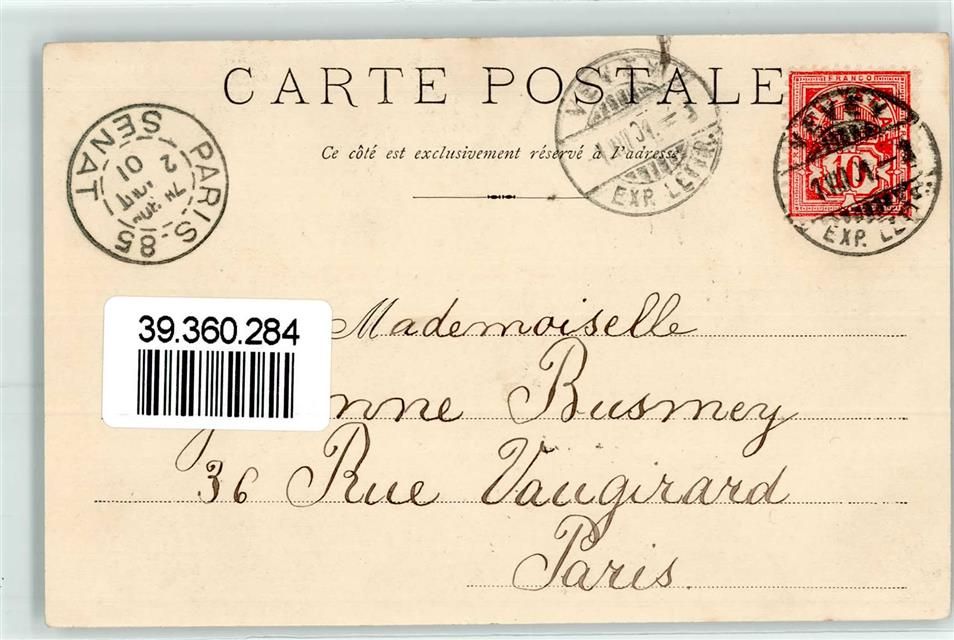 CARTE POSTALE
Ce côté est exclusivement réservé à l'adresse
PARIS-85
SENAT
2
01
VEVEY
1.VII.01.-
EXP. LETTR.
FRANCO
10
VEVEY
1.VII.01.-
EXP. LETTR.
39.360.284
Mademoiselle
nne Busmey
36 Rue Vaugirard
Paris.